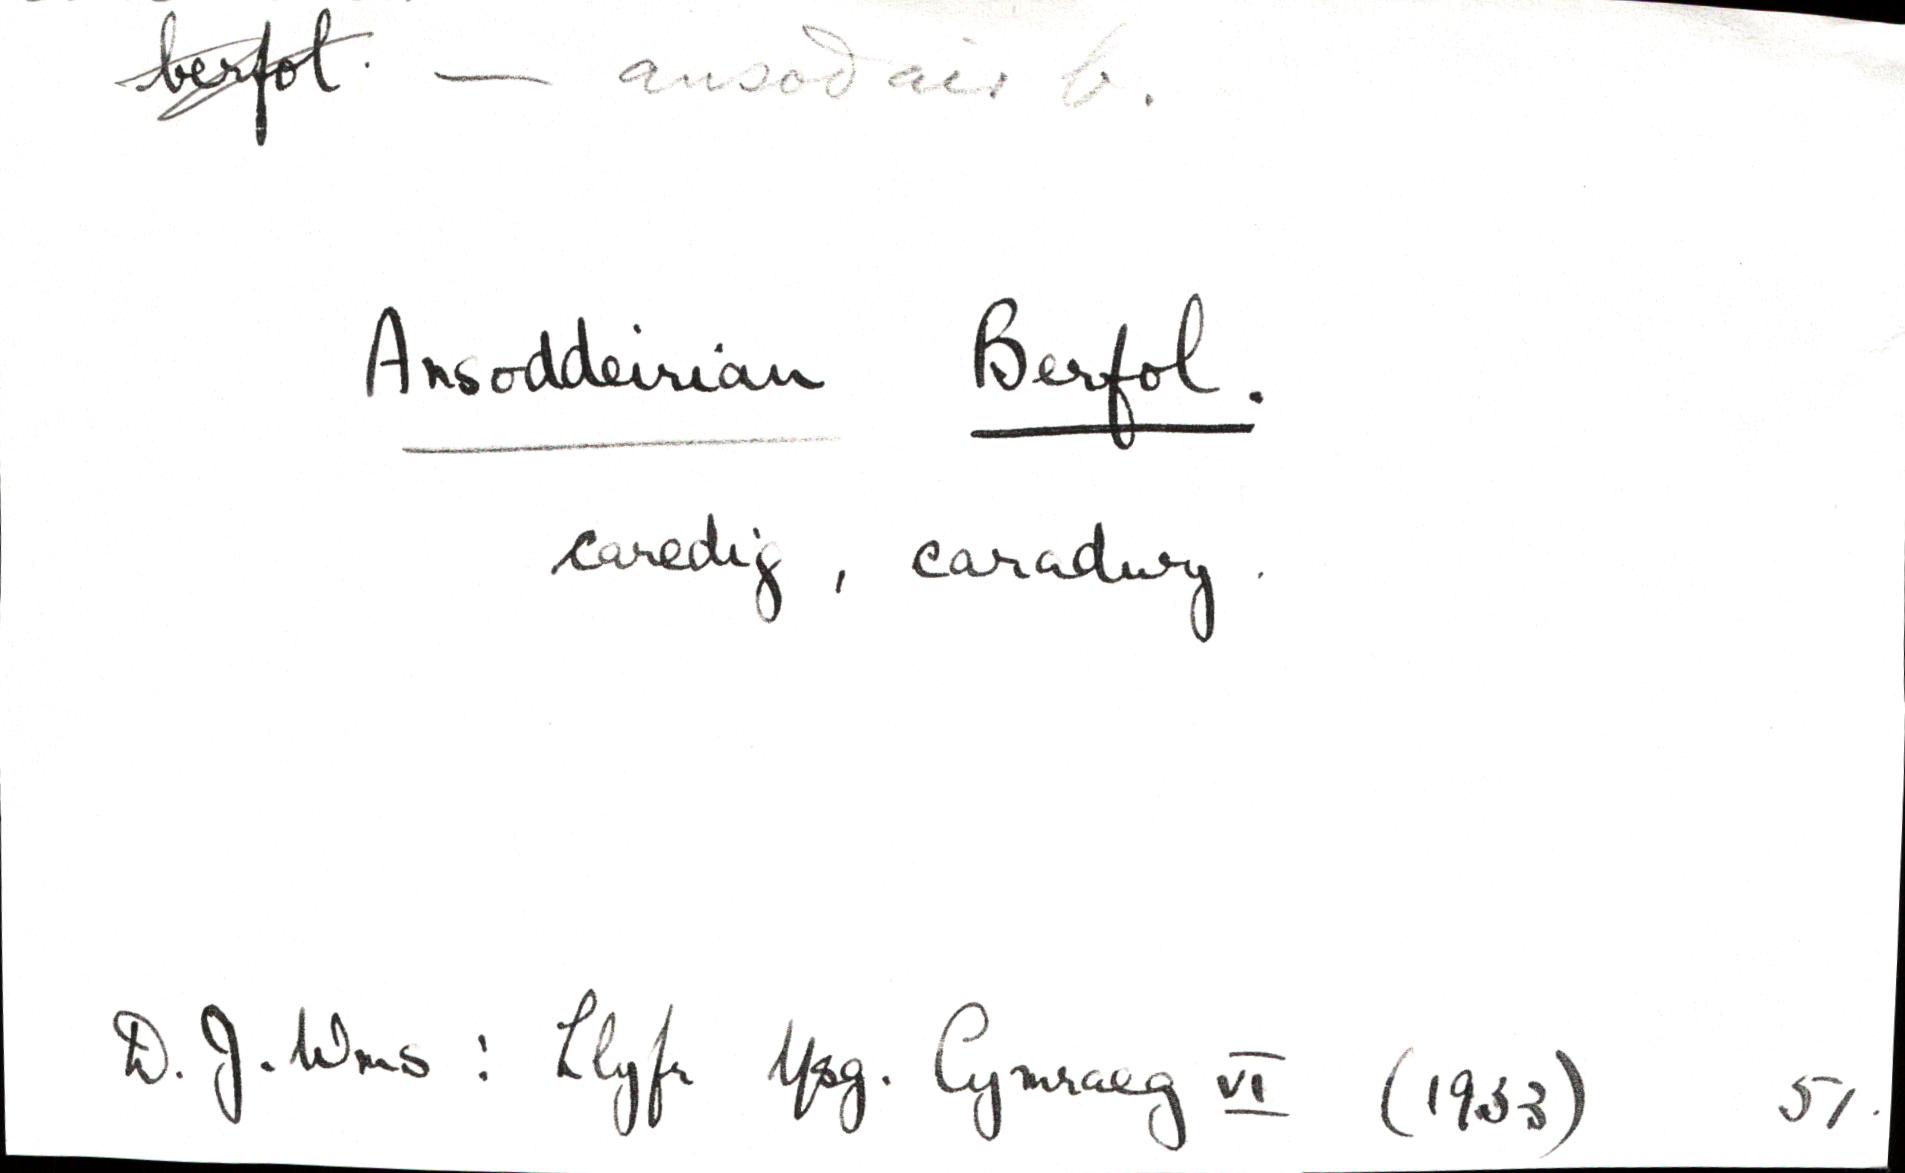 berfol. — ansoddair b.
Ansoddeiriau Berfol.
caredig, caradwy.
D. J. Wms : Llyfr Ysg. Cymraeg VI (1933) 51.